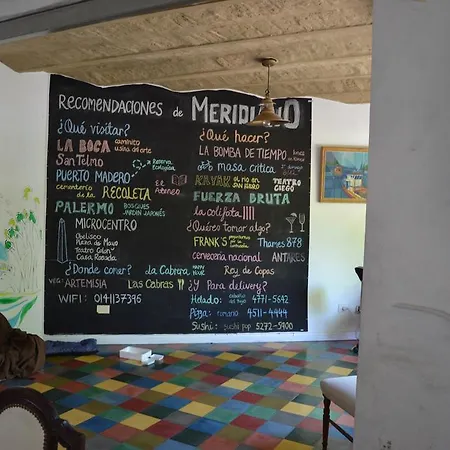 RECOMENDACIONES DE MERIDIANO
¿Qué visitar?
LA BOCA caminito
San Telmo
PUERTO MADERO Reserva Ecológica
cementerio de la RECOLETA El Ateneo
PALERMO BOSQUES JARDIN JAPONÉS
MICROCENTRO
Obelisco
Plaza de Mayo
Teatro Colón
Casa Rosada
¿Qué hacer?
LA BOMBA DE TIEMPO
masa crítica
KAYAK en río en SAN ISIDRO TEATRO CIEGO
FUERZA BRUTA
la colifata
¿Querés tomar algo?
FRANK'S Thames 878
cervecería nacional ANTARES
¿Donde comer? la Cabrera HAPPY HOUR Rey de Copas
VEG: ARTEMISIA Las Cabras
WIFI: 0141137395
¿Y Para delivery?
Helado: 4771-5642
Pizza: romario 4511-4494
Sushi: sushi pop 5272-5900